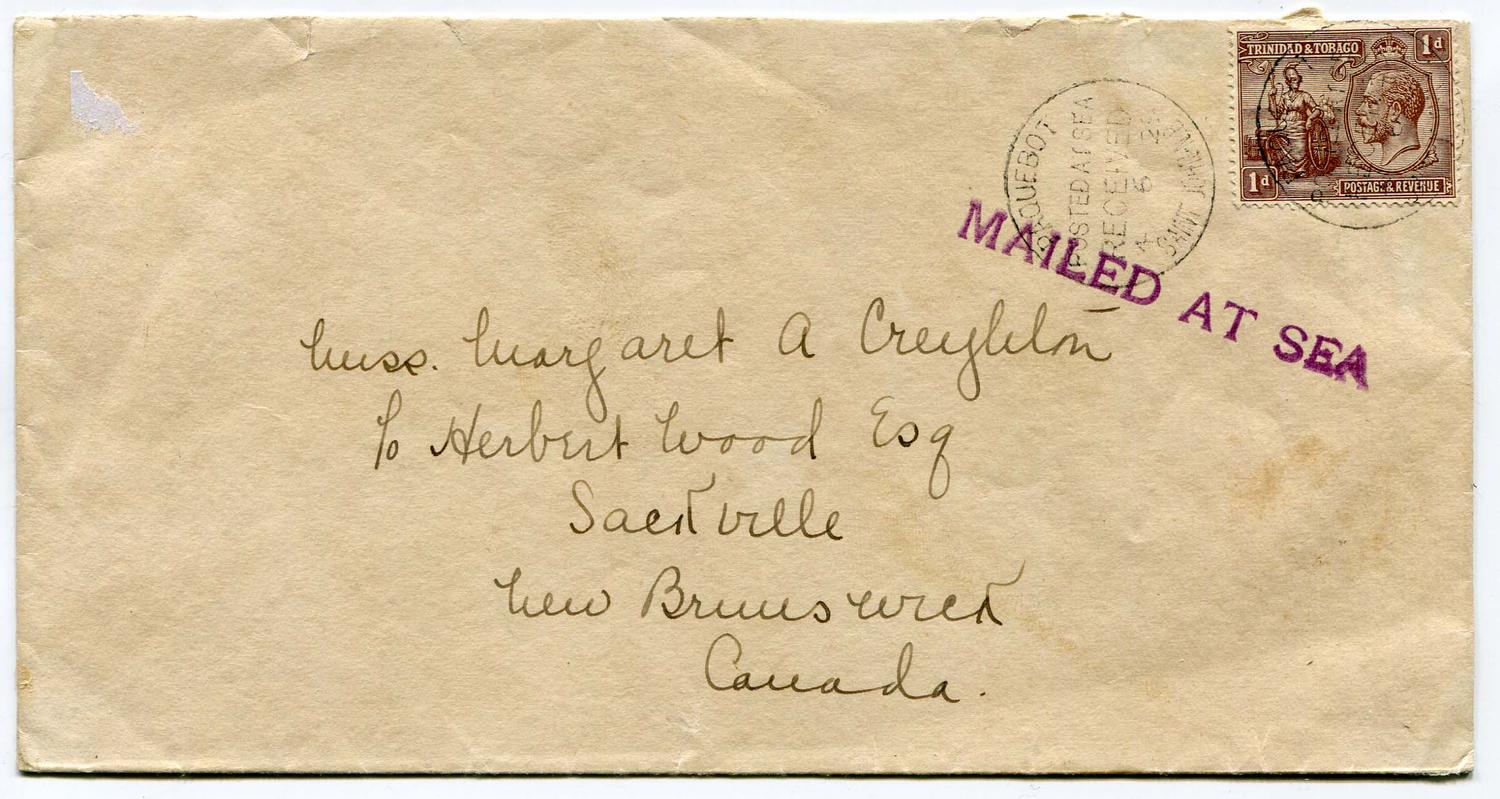 TRINIDAD & TOBAGO
1d
1d
POSTAGE & REVENUE
PAQUEBOT
POSTED AT SEA
RECEIVED
SAINT JOHN
MAILED AT SEA
Miss. Margaret A Creighton
c/o Herbert Wood Esq
Sackville
New Brunswick
Canada.